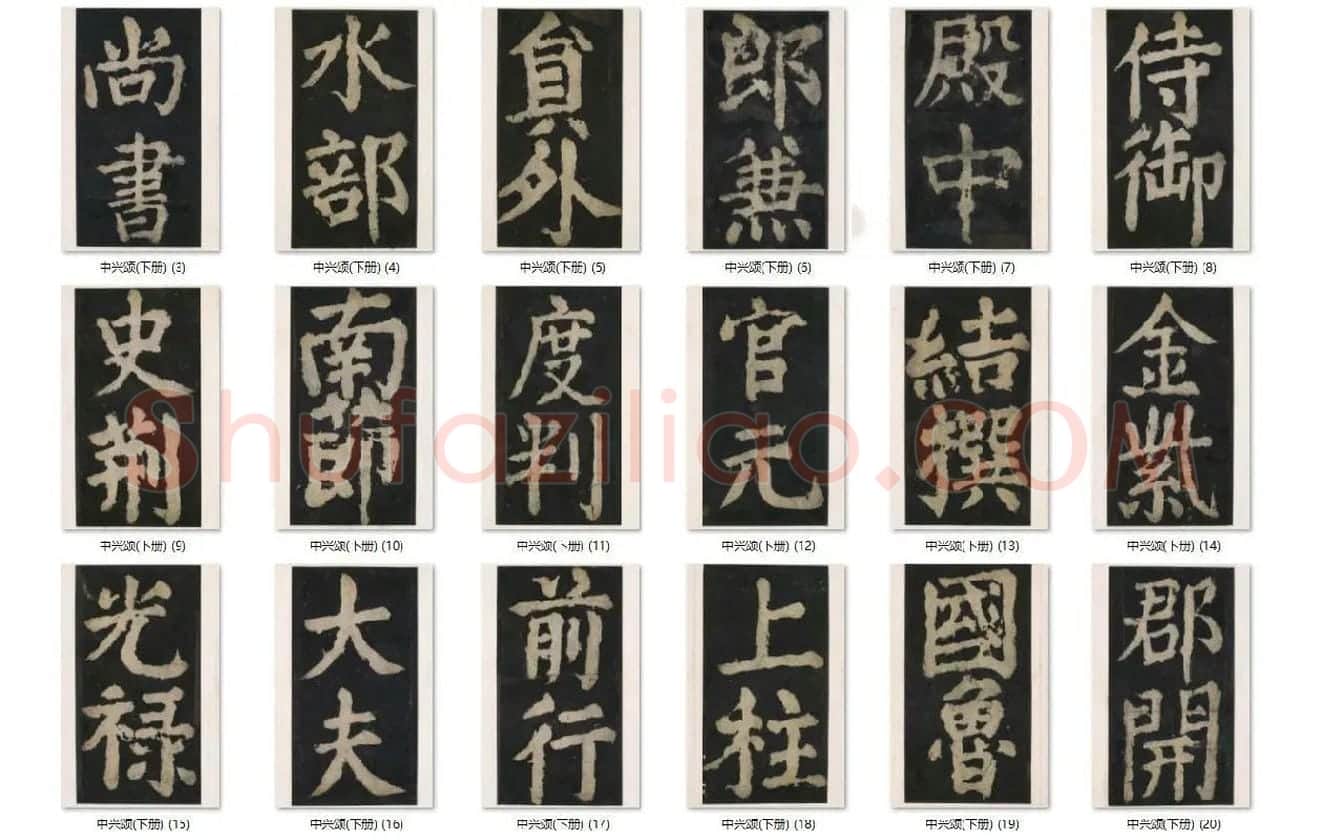 尚書
水部
貟外
郎兼
殿中
侍御
中兴颂(下册) (3)
中兴颂(下册) (4)
中兴颂(下册) (5)
中兴颂(下册) (6)
中兴颂(下册) (7)
中兴颂(下册) (8)
史荆
南莭
度判
官元
結撰
金紫
Shufaziliao.COM
中兴颂(下册) (9)
中兴颂(下册) (10)
中兴颂(下册) (11)
中兴颂(下册) (12)
中兴颂(下册) (13)
中兴颂(下册) (14)
光禄
大夫
前行
上柱
國魯
郡開
中兴颂(下册) (15)
中兴颂(下册) (16)
中兴颂(下册) (17)
中兴颂(下册) (18)
中兴颂(下册) (19)
中兴颂(下册) (20)